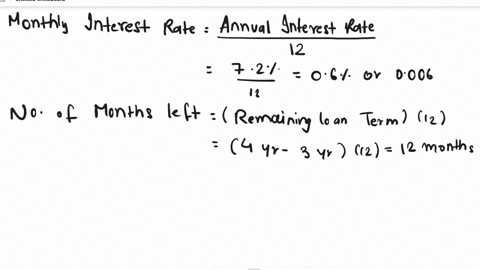 Monthly Interest Rate = Annual Interest Rate / 12
= 7.2% / 12 = 0.6% or 0.006
No. of Months left = (Remaining loan Term) (12)
= (4 yr - 3 yr) (12) = 12 months